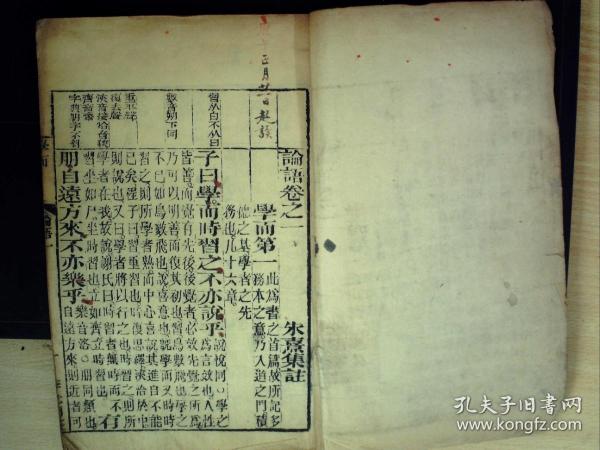 正月廿日起讀
論語卷之一
朱熹集註
學而第一
此為書之首篇故所記多
務本之意乃入道之門積
德之基學者之先
務也凡十六章
子曰學而時習之不亦說乎
說悅同○學之
為言效也人性
皆善而覺有先後後覺者必效先覺之所爲
乃可以明善而復其初也習鳥數飛也學之
不已如鳥數飛也說喜意也旣學而又時時
習之則所學者熟而中心喜說其進自不能
已矣程子曰習重習也時復思繹浹洽於中
則說也又曰學者將以行之也時習之則所
學者在我故說謝氏曰時習者無時而不
習坐如尸坐時習也立如齊立時習也
有
朋自遠方來不亦樂乎
樂音洛○朋同類也
自遠方來則近者可
習从白不从日
數音朔下同
重平聲
復去聲
浹音接洽音狹
齊音齋
孔夫子旧书网
book.kongfz.com